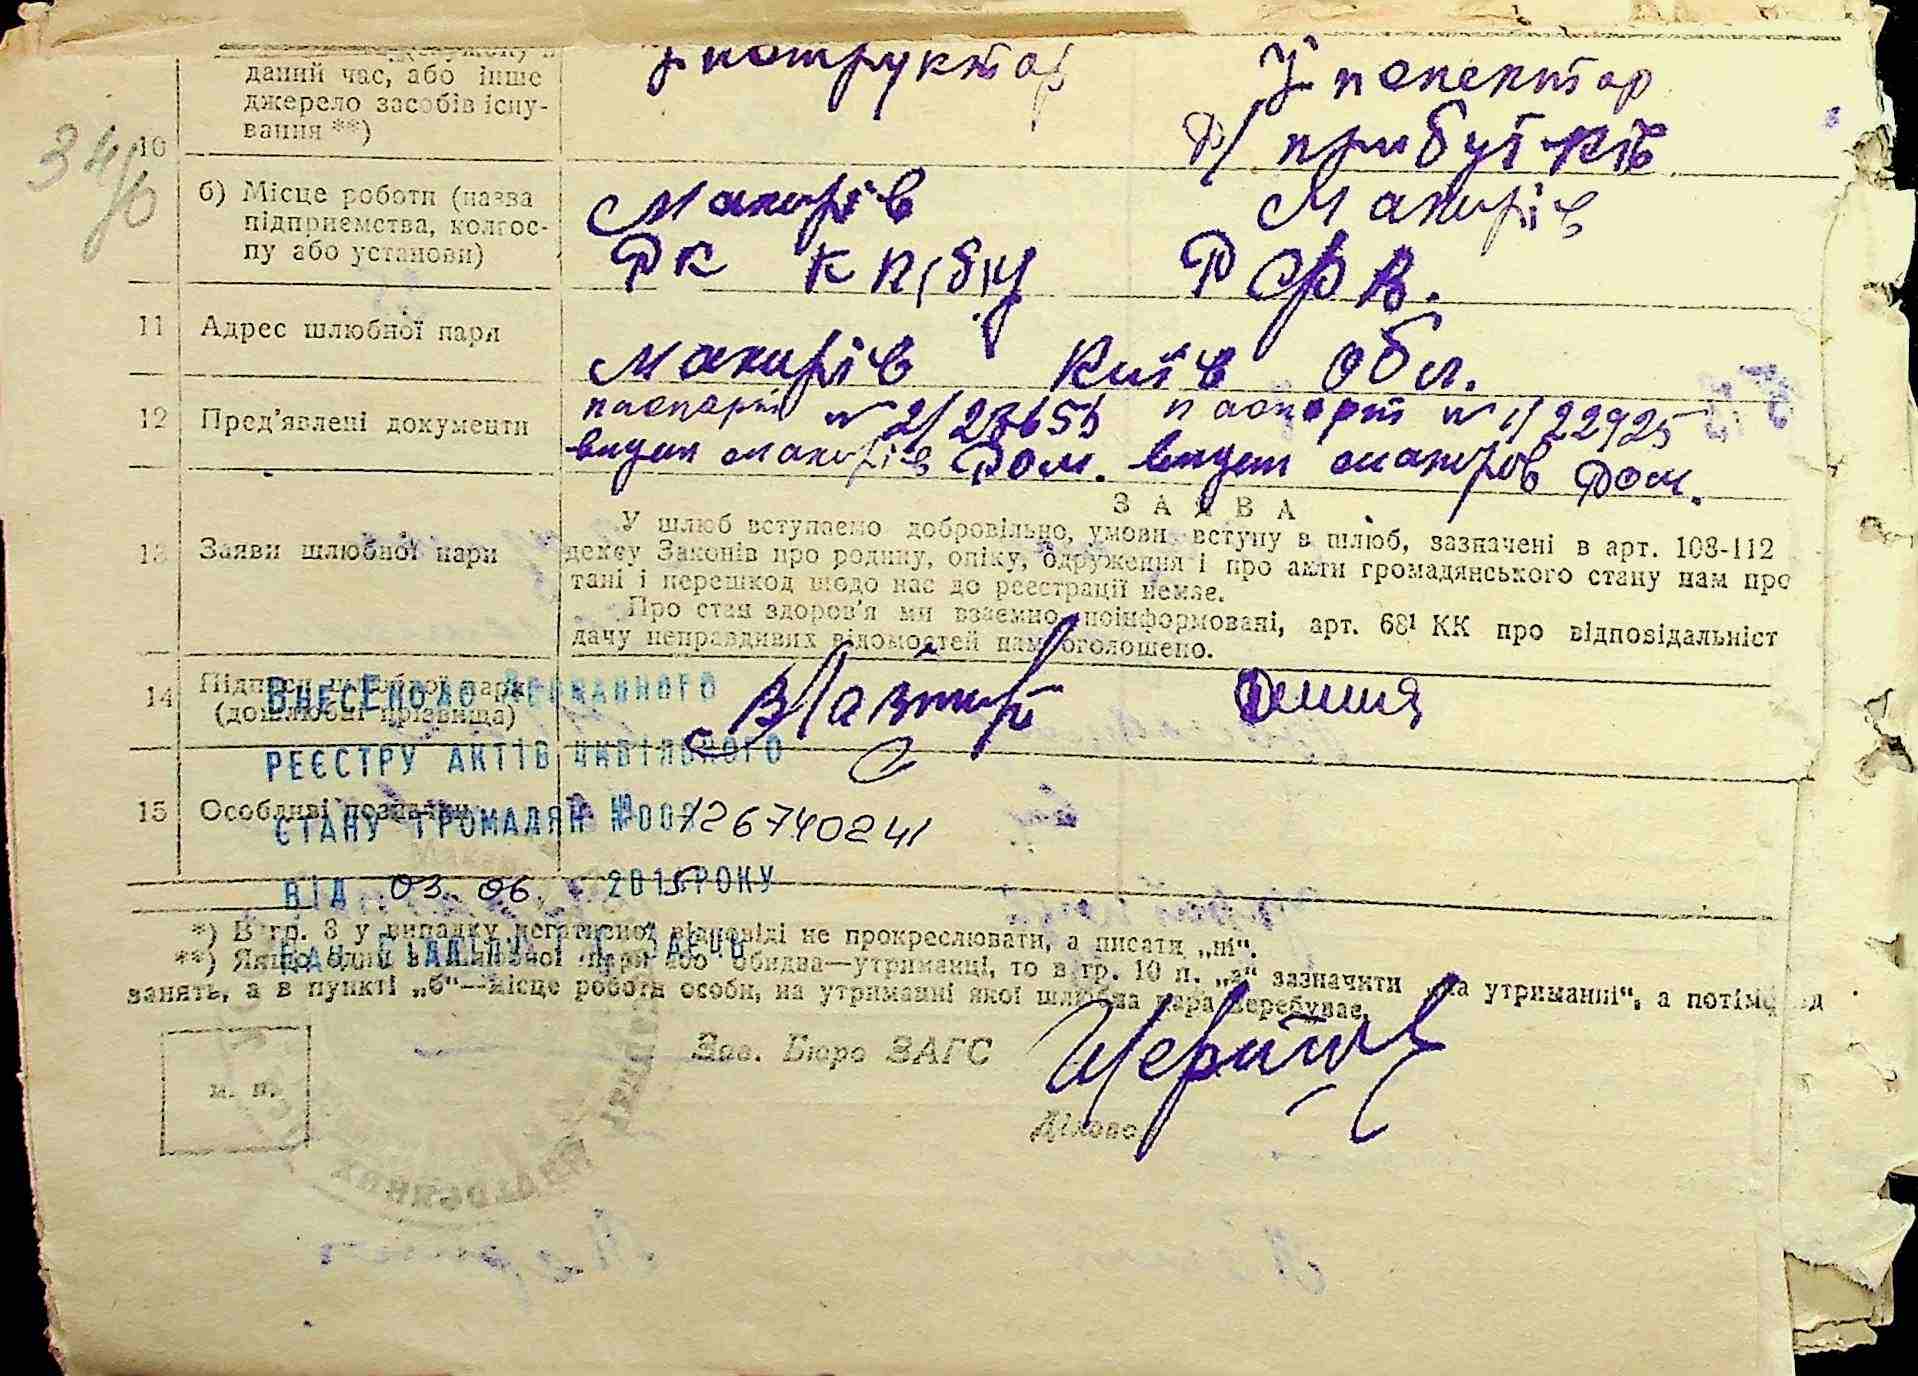 даний час, або інше
джерело засобів існу-
вання **)
Інструктор
Інспектор
д/ прибутків
10
34/0
б) Місце роботи (назва
підприємства, колгос-
пу або установи)
Макарів
РК КП(б)У
Макарів
РФВ.
11 Адрес шлюбної пари
Макарів Київ обл.
12 Пред'явлені документи
паспорт № паспорт №
видан Макарів РОМ. видан Макаров РОМ.
ЗАЯВА
13 Заяви шлюбної пари
У шлюб вступаємо добровільно, умови вступу в шлюб, зазначені в арт. 108-112
дексу Законів про родину, опіку, одруження і про акти громадянського стану нам про
тані і перешкод щодо нас до реєстрації немає.
Про стан здоров'я ми взаємно поінформовані, арт. 68¹ КК про відповідальніст
дачу неправдивих відомостей нам оголошено.
14 Підписи шлюбної пари
(дошлюбні прізвища)
ВНЕСЕНО ДО ДЕРЖАВНОГО
РЕЄСТРУ АКТІВ ЦИВІЛЬНОГО
15 Особливі позначки
СТАНУ ГРОМАДЯН № 00126740241
ВІД 03.06. 2015 РОКУ
*) В гр. 8 у випадку негативної відповіді не прокреслювати, а писати „ні“.
**) Якщо один з шлюбної пари або обидва—утриманці, то в гр. 10 п. „а“ зазначити „на утриманні“, а потім
занять, а в пункті „б“—місце роботи особи, на утриманні якої шлюбна пара перебуває.
Зав. Бюро ЗАГС
м. п.
Діловод